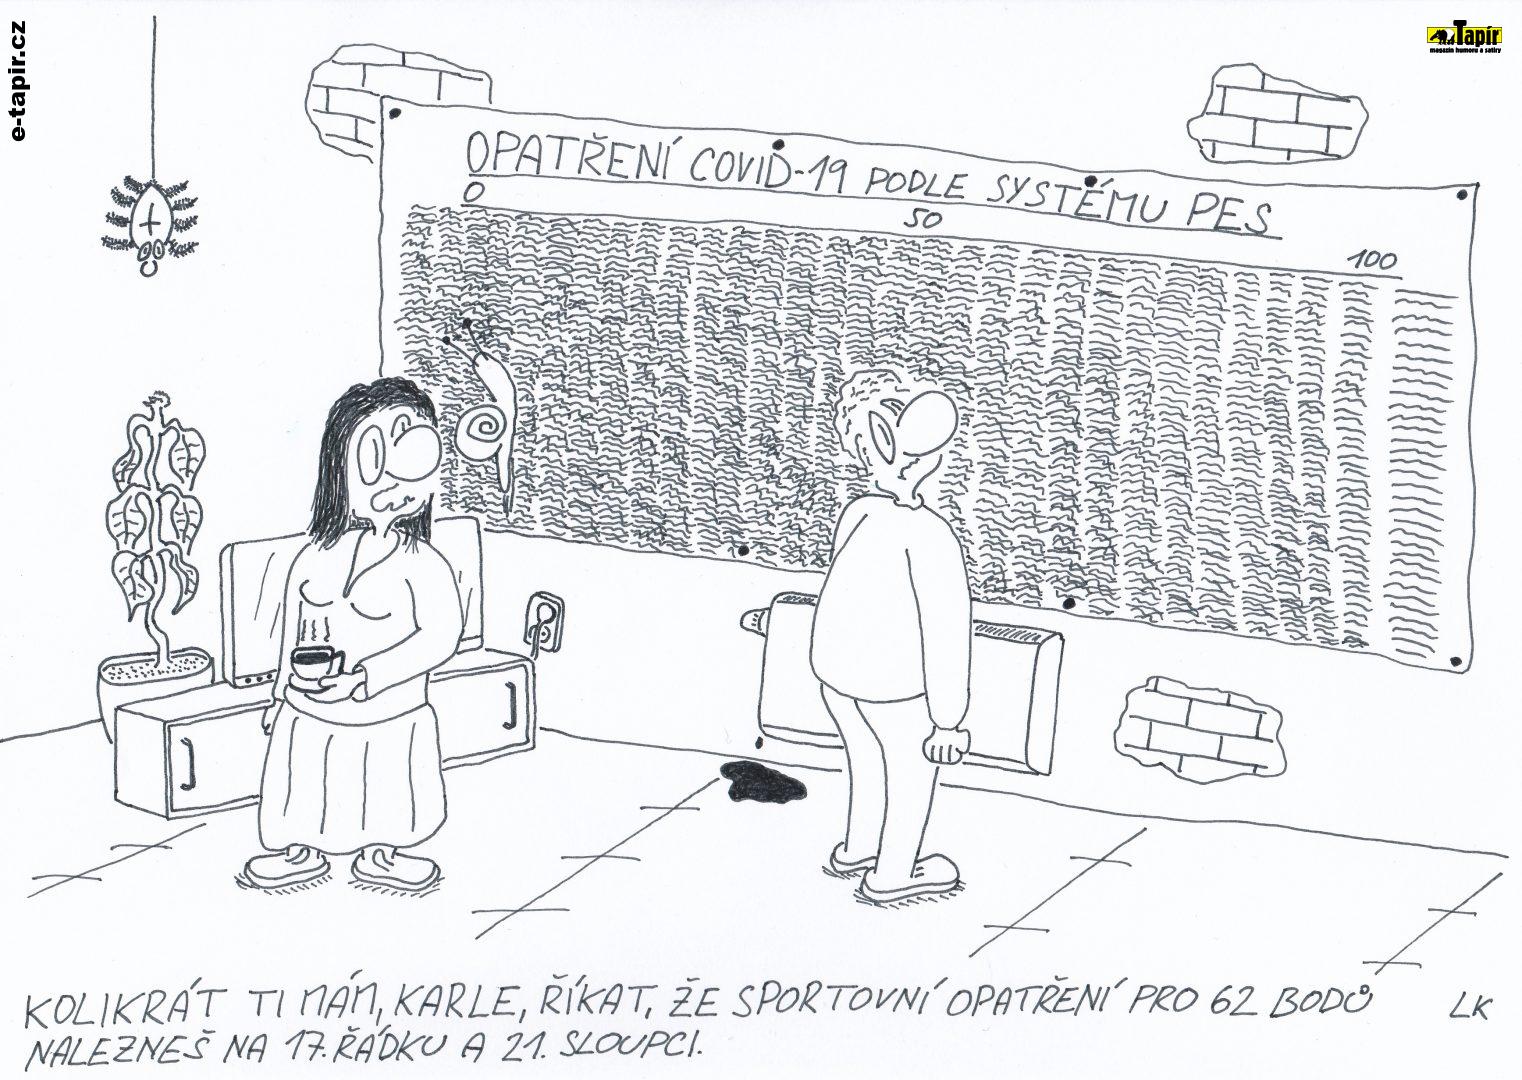 e-tapir.cz
Tapír
magazín humoru a satiry
OPATŘENÍ COVID-19 PODLE SYSTÉMU PES
0 50 100
KOLIKRÁT TI MÁM, KARLE, ŘÍKAT, ŽE SPORTOVNÍ OPATŘENÍ PRO 62 BODŮ
NALEZNEŠ NA 17. ŘÁDKU A 21. SLOUPCI.
LK